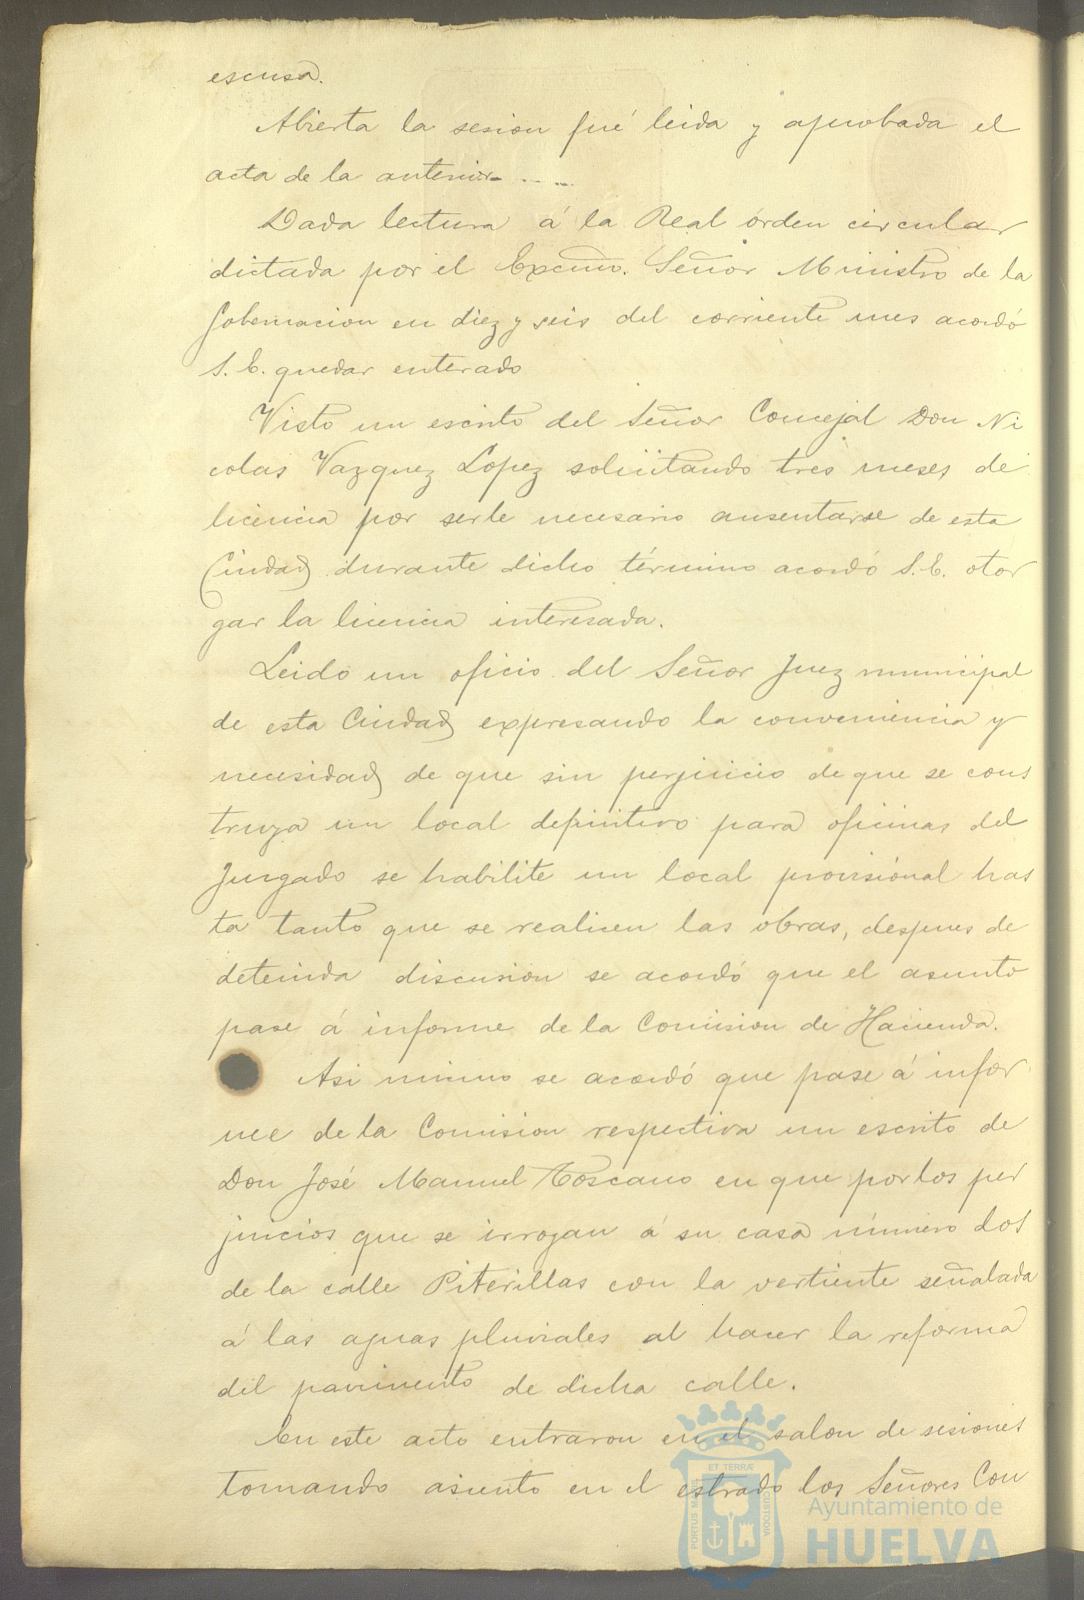 escusa.
Abierta la sesion fué leida y aprobada el
acta de la anterior
Dada lectura á la Real órden circular
dictada por el Excmo. Señor Ministro de la
Gobernacion en diez y seis del corriente mes acordó
S. E. quedar enterado
Visto un escrito del Señor Concejal Don Ni
colas Vazquez Lopez solicitando tres meses de
licencia por serle necesario ausentarse de esta
Ciudad durante dicho término acordó S. E. otor
gar la licencia interesada.
Leido un oficio del Señor Juez municipal
de esta Ciudad expresando la conveniencia y
necesidad de que sin perjuicio de que se cons
truya un local definitivo para oficinas del
Juzgado se habilite un local provisional has
ta tanto que se realicen las obras, despues de
detenida discusion se acordó que el asunto
pase á informe de la Comision de Hacienda.
Asi mismo se acordó que pase á infor
me de la Comision respectiva un escrito de
Don José Manuel Toscano en que por los per
juicios que se irrogan á su casa número dos
de la calle Piterillas con la vertiente señalada
á las aguas pluviales al hacer la reforma
del pavimento de dicha calle.
En este acto entraron en el salon de sesiones
tomando asiento en el estrado los Señores Con
ET TERRÆ
PORTUS MARIS
CUSTODIA
Ayuntamiento de
HUELVA